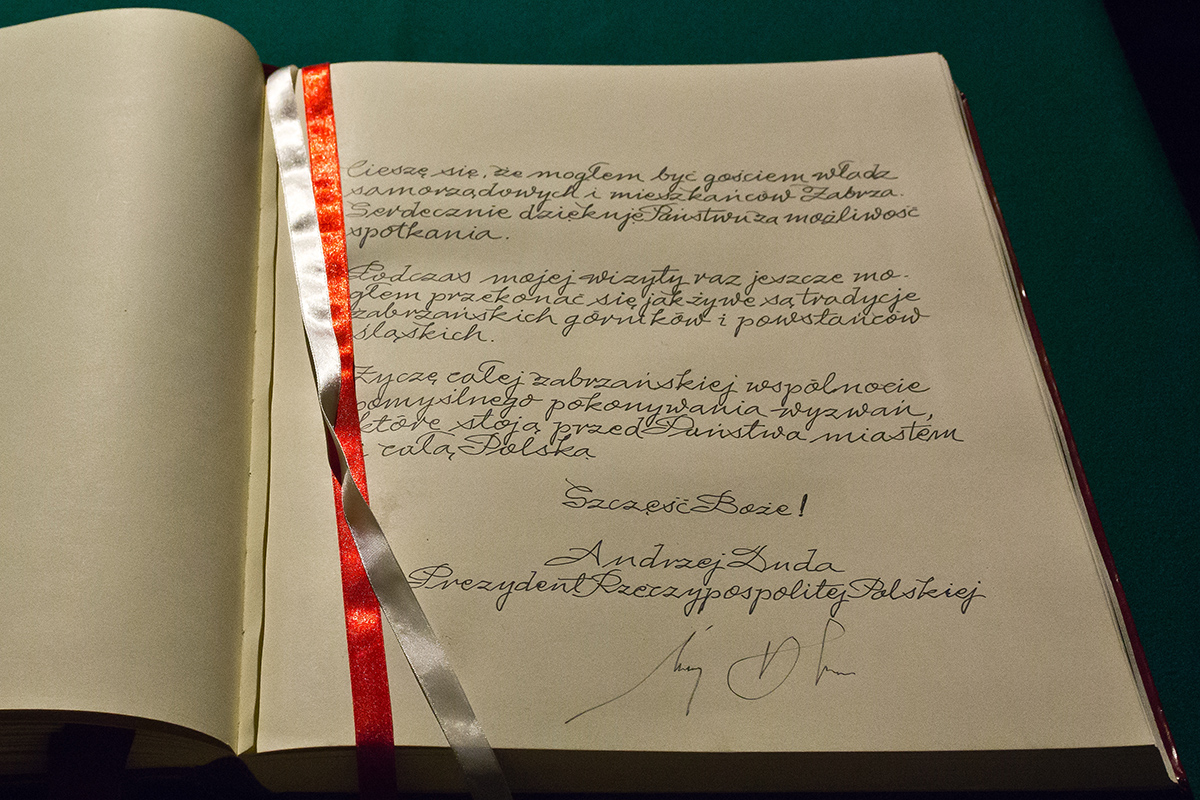 Cieszę się, że mogłem być gościem władz
samorządowych i mieszkańców Zabrza.
Serdecznie dziękuję Państwu za możliwość
spotkania.
Podczas mojej wizyty raz jeszcze mo-
głem przekonać się jak żywe są tradycje
zabrzańskich górników i powstańców
śląskich.
Życzę całej zabrzańskiej wspólnocie
pomyślnego pokonywania wyzwań,
które stoją przed Państwa miastem
i całą Polską
Szczęść Boże!
Andrzej Duda
Prezydent Rzeczypospolitej Polskiej